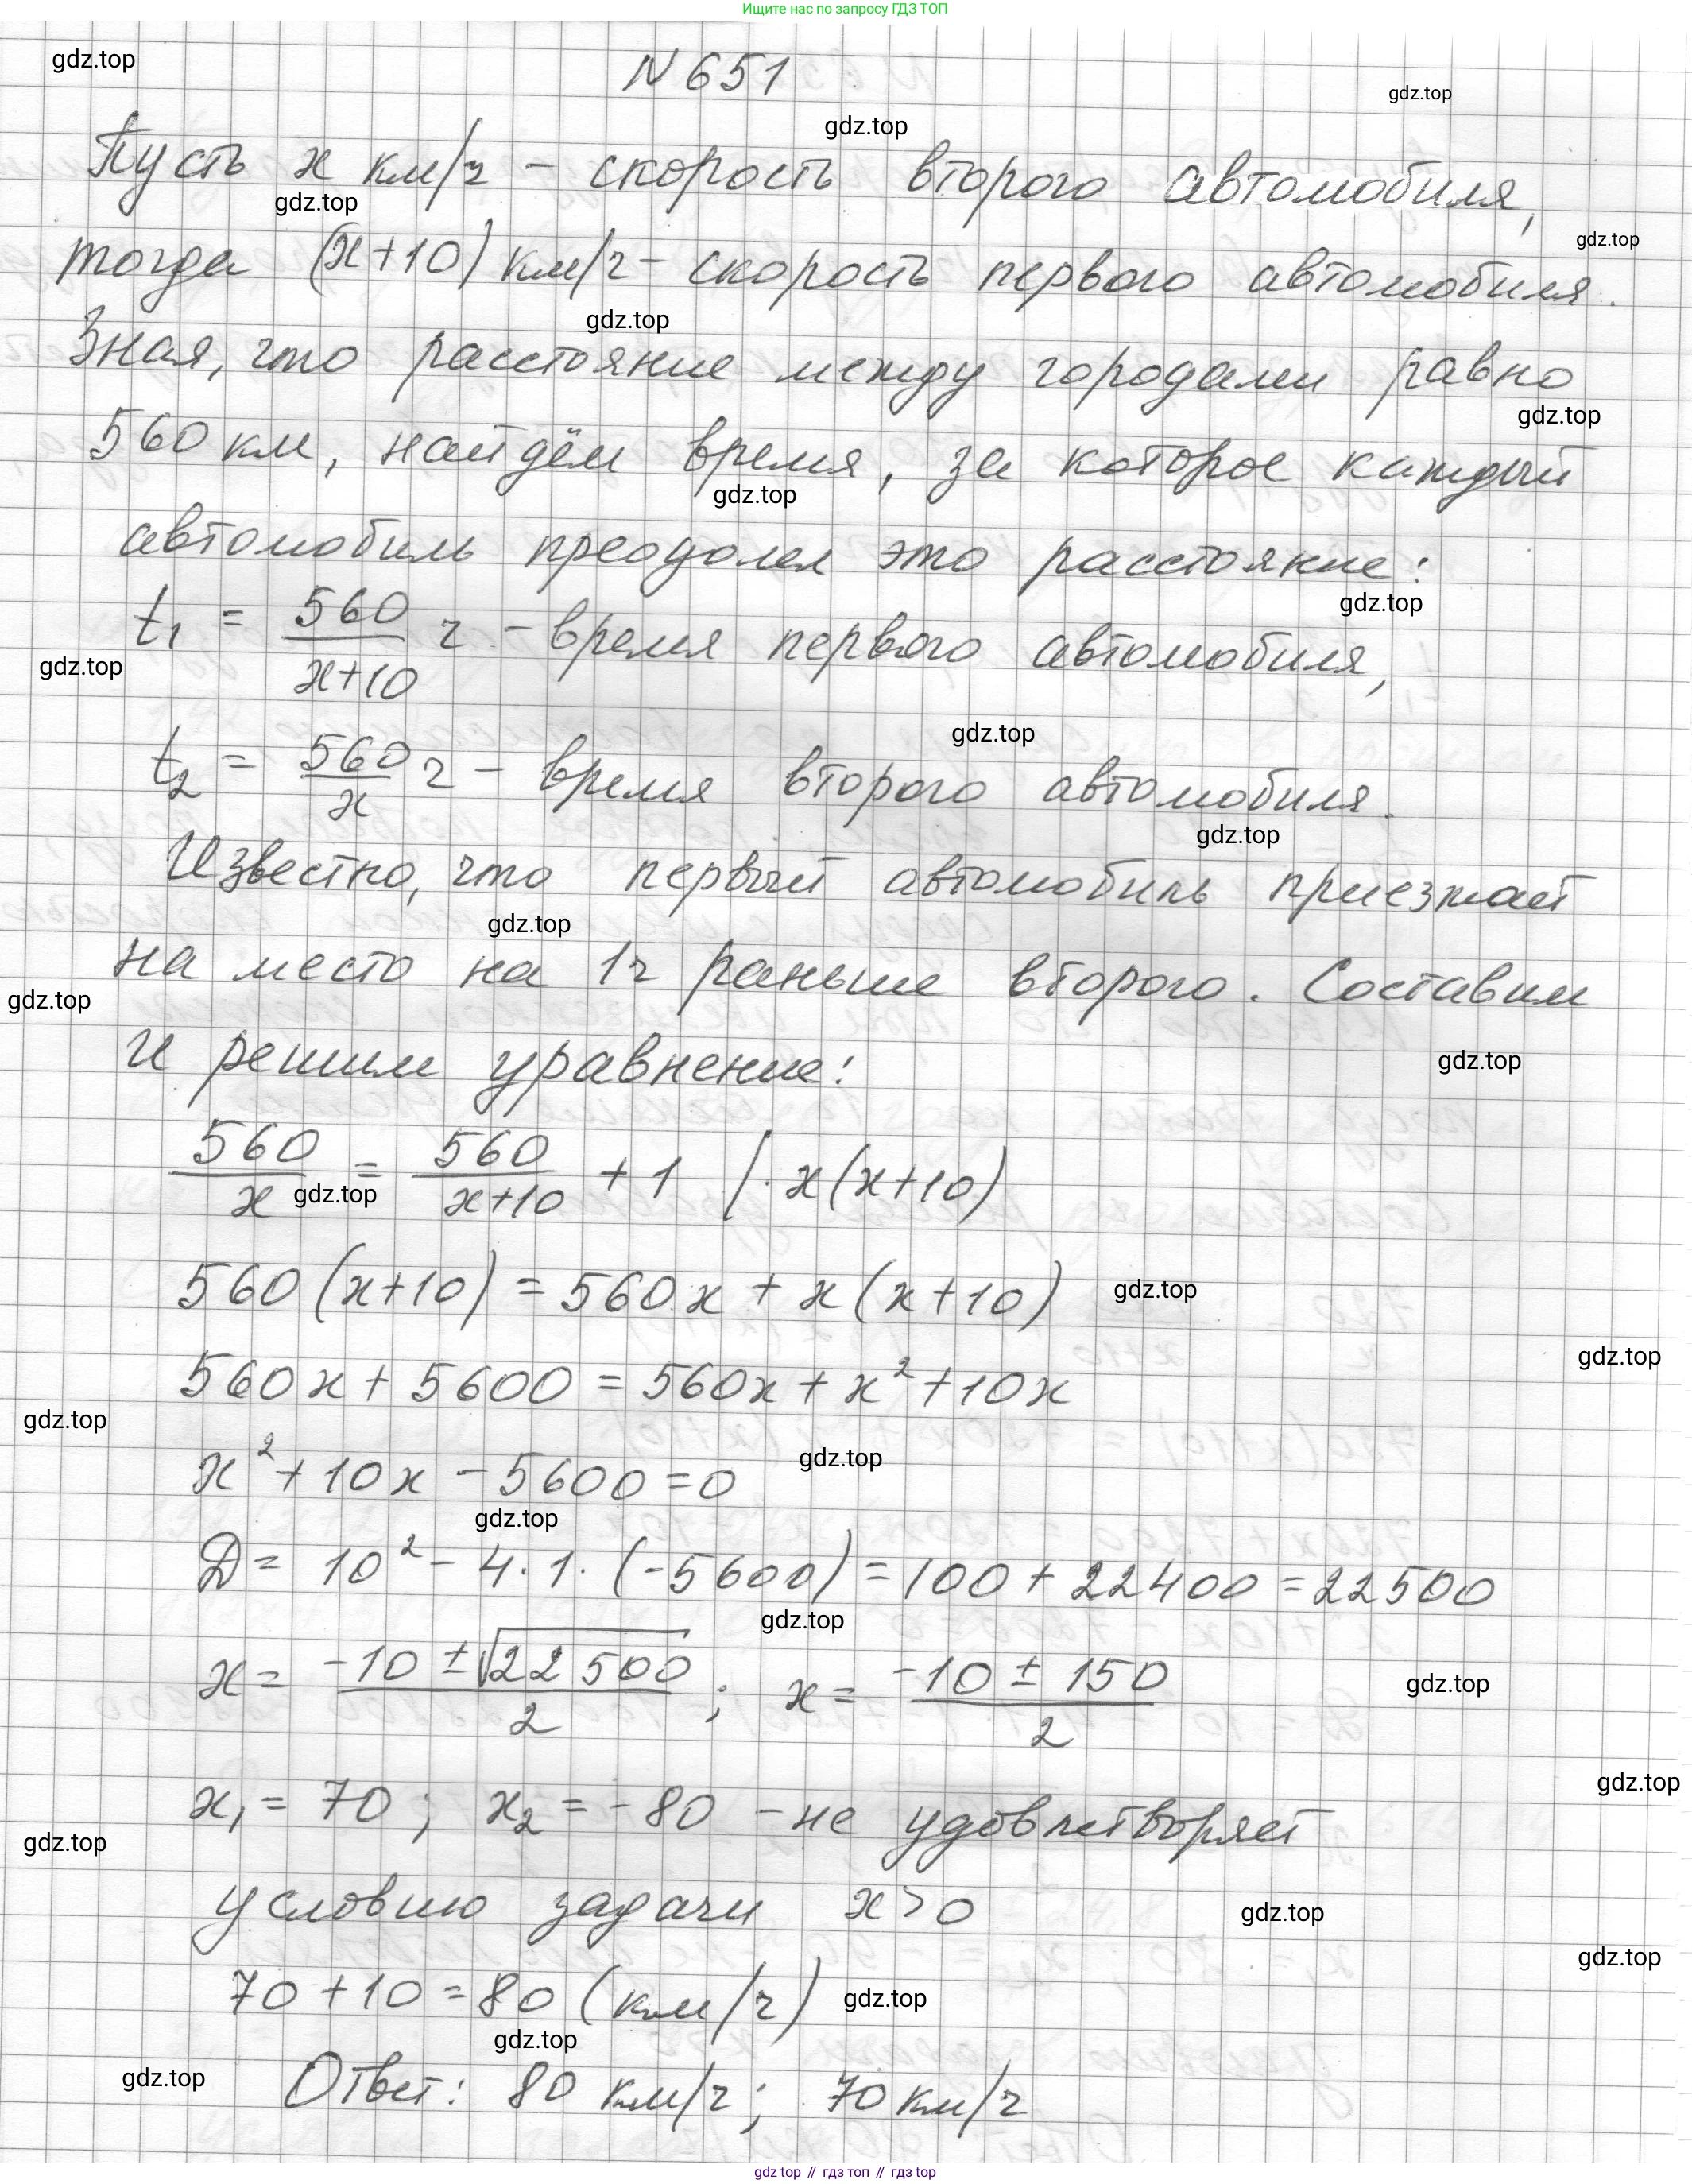 Ищите нас по запросу ГДЗ ТОП
gdz.top
N 651
gdz.top
gdz.top
Пусть x км/ч - скорость второго автомобиля,
gdz.top
gdz.top
тогда (x+10) км/ч - скорость первого автомобиля.
gdz.top
Зная, что расстояние между городами равно
gdz.top
560 км, найдём время, за которое каждый
gdz.top
автомобиль преодолел это расстояние:
gdz.top
t₁ = 560/(x+10) ч - время первого автомобиля,
gdz.top
gdz.top
t₂ = 560/x ч - время второго автомобиля.
gdz.top
Известно, что первый автомобиль приезжает
gdz.top
на место на 1ч раньше второго. Составим
gdz.top
и решим уравнение:
gdz.top
560/x = 560/(x+10) + 1 | · x(x+10)
gdz.top
560(x+10) = 560x + x(x+10)
gdz.top
gdz.top
560x + 5600 = 560x + x² + 10x
gdz.top
gdz.top
x² + 10x - 5600 = 0
gdz.top
D = 10² - 4 · 1 · (-5600) = 100 + 22400 = 22500
gdz.top
x = (-10 ± √22500)/2 ; x = (-10 ± 150)/2
gdz.top
gdz.top
x₁ = 70 ; x₂ = -80 - не удовлетворяет
gdz.top
условию задачи x > 0
gdz.top
gdz.top
70 + 10 = 80 (км/ч)
gdz.top
gdz.top
gdz.top
Ответ: 80 км/ч ; 70 км/ч
gdz.top // гдз топ // гдз top